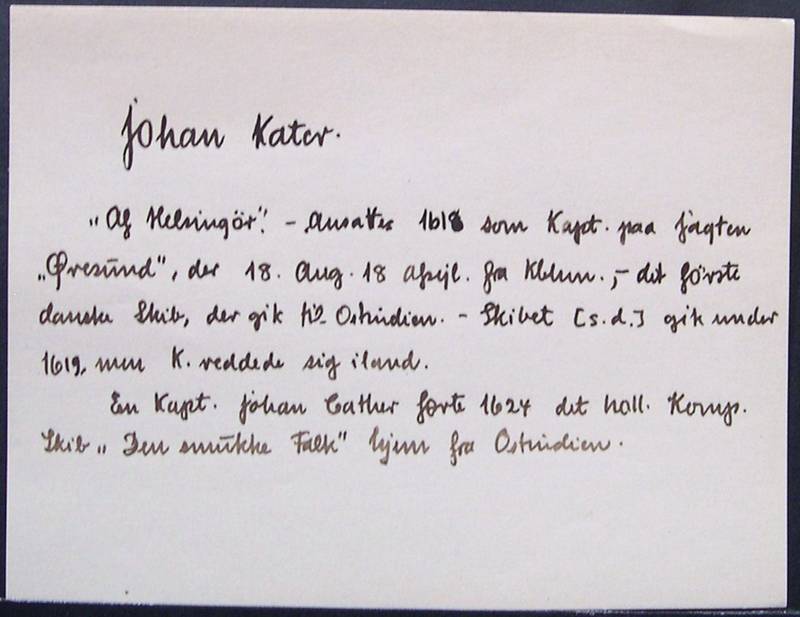 Johan Kater.
„Af Helsingör". - Ansattes 1618 som Kapt. paa Jagten
„Øresund", der 18. Aug. 18 afsejl. fra Kbhvn., - det förste
danske Skib, der gik til Ostindien. - Skibet [s.d.] gik under
1619, men K. reddede sig iland.
En Kapt. Johan Cather førte 1624 det holl. Komp.
Skib „Den smukke Falk" hjem fra Ostindien.